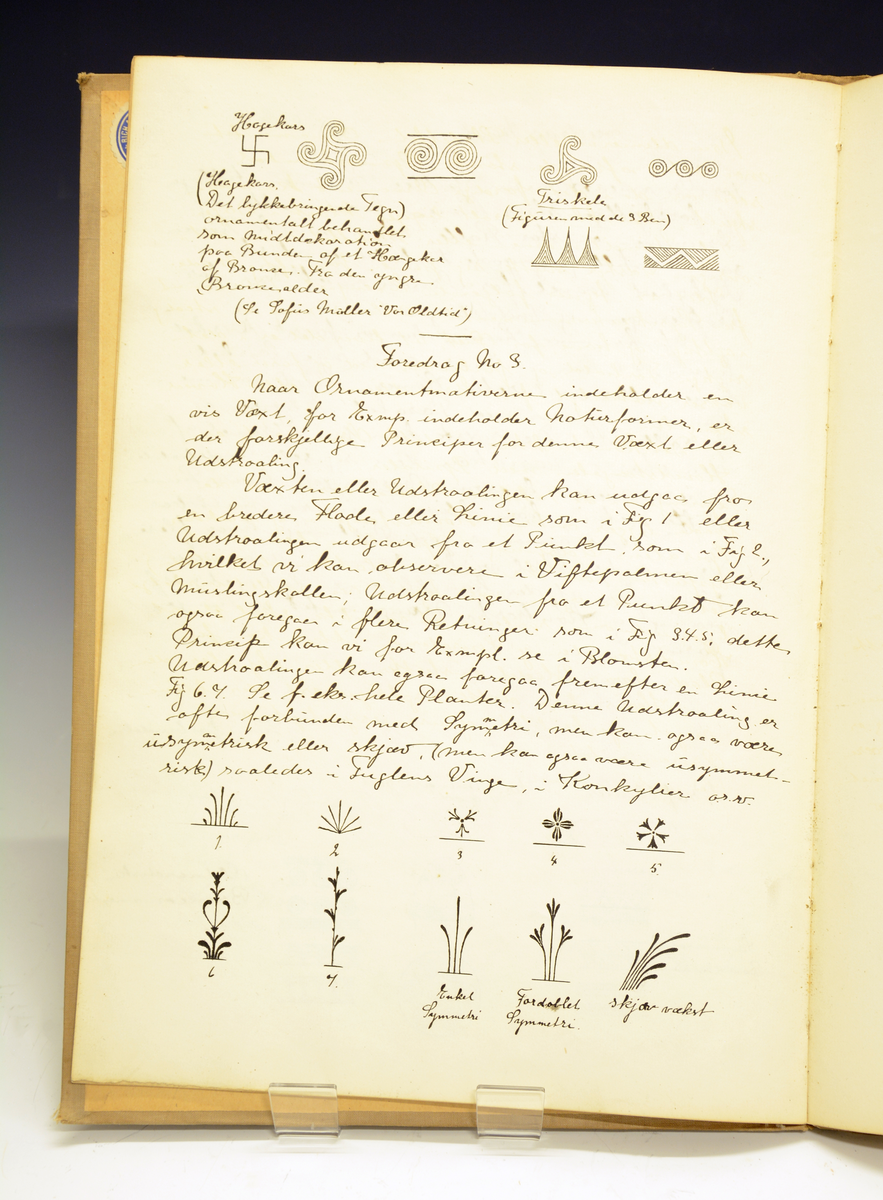 Hagekors
(Hagekors.
Det lykkebringende Tegn)
ornamentalt behandlet
som Midtdekoration
paa Bunden af et Hængekar
af Bronse. Fra den yngre
Bronsealder
(Se Sofus Müller "Vor Oldtid")
Triskele
(Figuren med de 3 Ben)
Foredrag No 3.
Naar Ornamentmotiverne indeholder en
vis Væxt, for Exmp. indeholder Naturformer, er
der forskjellige Principer for denne Væxt eller
Udstraaling.
Væxten eller Udstraalingen kan udgaa fra
en bredere Flade eller Linie som i Fig 1 eller
Udstraalingen udgaar fra et Punkt, som i Fig 2.,
hvilket vi kan observere i Viftepalmen eller
Muslingskallen; Udstraalingen fra et Punkt kan
ogsaa foregaa i flere Retninger som i Fig 3.4.5; dette
Princip kan vi for Exmpl. se i Blomsten.
Udstraalingen kan ogsaa foregaa fremefter en Linie
Fig 6. 7. Se f. eks. hele Planter. Denne Udstraaling er
ofte forbunden med Symmetri, men kan ogsaa være
usymmetrisk eller skjæv, (men kan ogsaa være usymmet-
risk) saaledes i Fuglens Vinge, i Konkylier o.s.v.
1.
2
3
4
5.
6
7.
Enkel
Symmetri
Fordoblet
Symmetri.
skjæv vækst